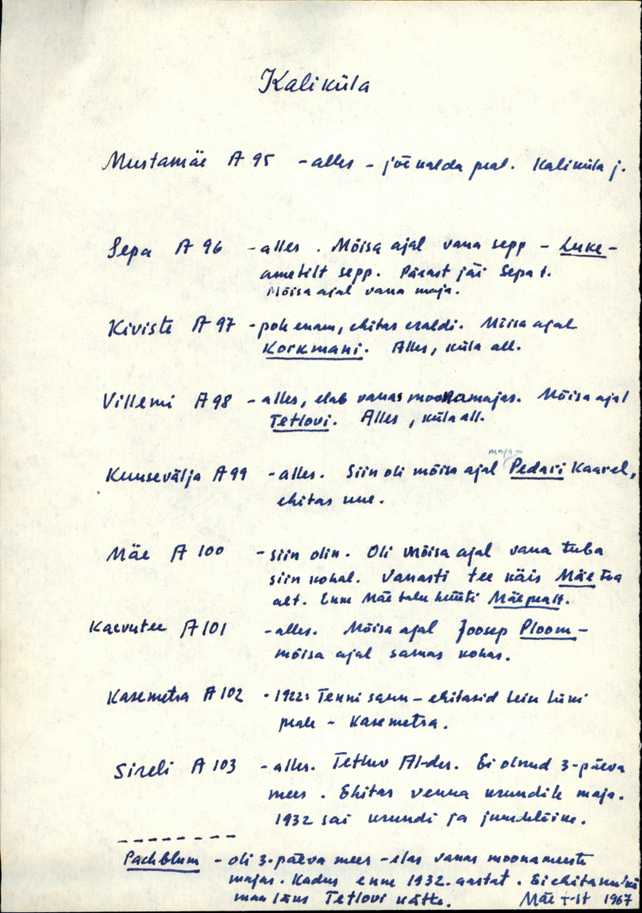 Kaliküla
Mustamäe A 95 - alles - jõekalda peal. Kaliküla j.
Sepa A 96 - alles. Mõisa ajal vana sepp - Luke -
ametilt sepp. Pärast jäi Sepa t.
Mõisa ajal vana maja.
Kiviste A 97 - pole enam, ehitas eraldi. Mõisa ajal
Korkmani. Alles, küla all.
Villemi A 98 - alles, elab vanas moonamajas. Mõisa ajal
Tetlovi. Alles, küla all.
Kuusevälja A 99 - alles. Siin oli mõisa ajal maja- Pedari Kaarel,
ehitas uue.
Mäe A 100 - siin olin. Oli mõisa ajal vana tuba
siin kohal. Vanasti tee käis Mäe ta
alt. Enne Mäe talu hüüti Mäepealt.
Kaevutee A 101 - alles. Mõisa ajal Joosep Ploom -
mõisa ajal samas kohas.
Kasemetsa A 102 - 1922: Tenni - ehitasid
peale - Kasemetsa.
Sireli A 103 - alles. Tetluv Al-der. Ei olnud 3-päeva
mees. Ehitas venna krundile maja.
1932 sai krundi ja
Pachblum - oli 3-päeva mees - elas vanas moonameeste
majas. Kadus enne 1932. aastat. Ei ehitanud
maa läks Tetlovi kätte. Mäe t-st 1967